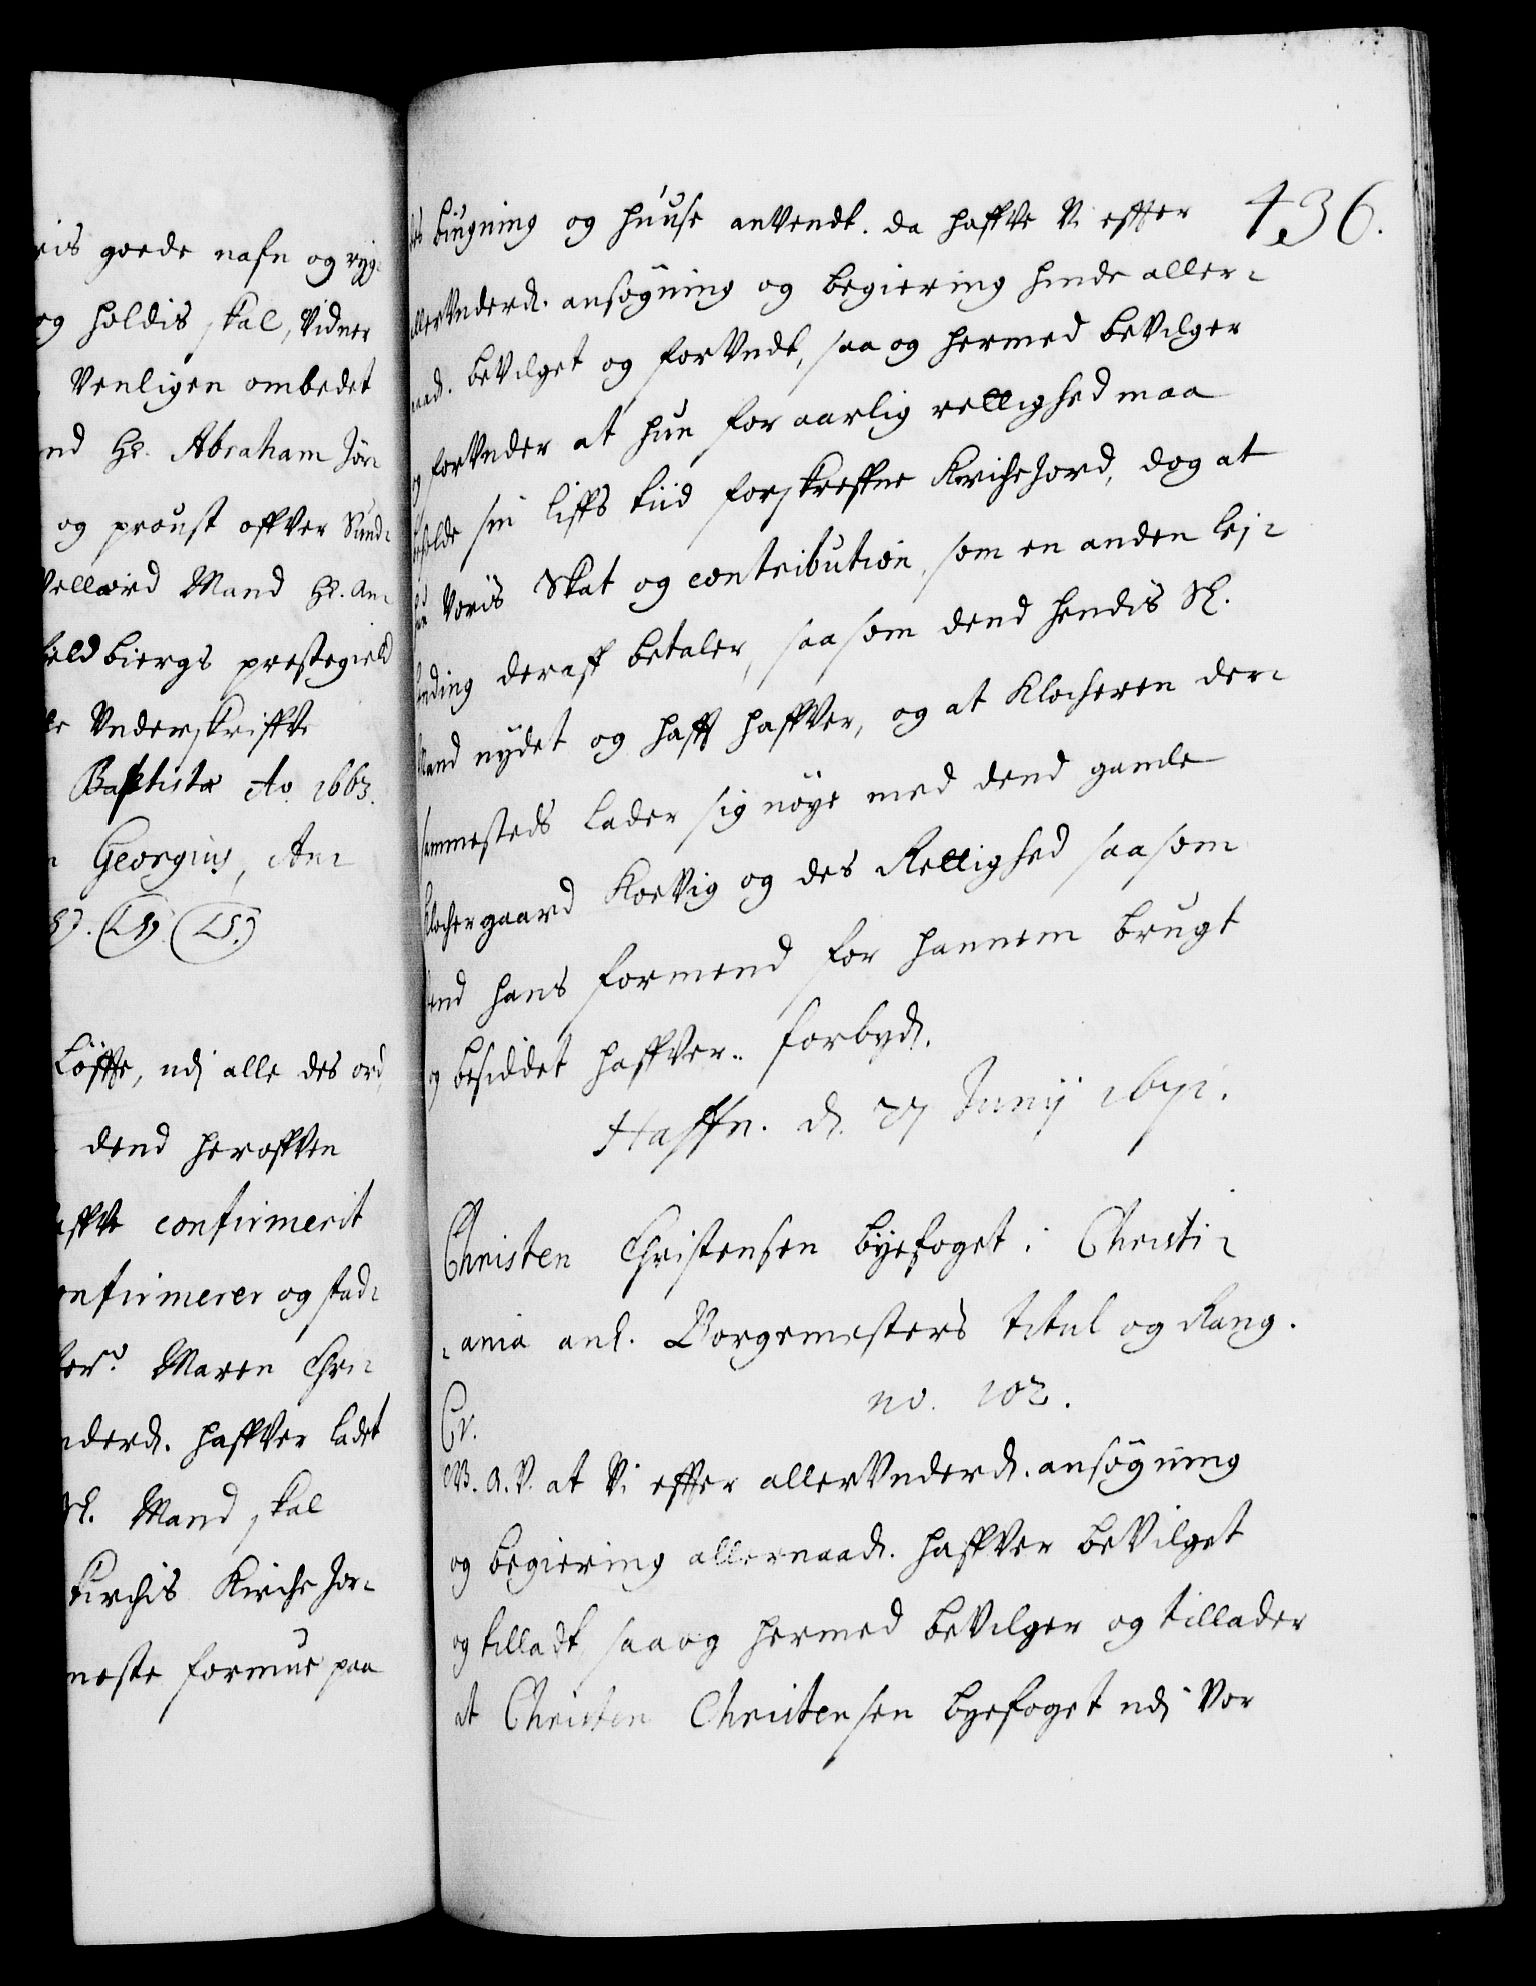 ris goede nafn og ryg-
og holdis skal, Vidner
Venligen ombedet
nd Hr. Abraham Jør-
og proust offver Sund-
Vellærd Mand Hr. An-
feldbiergs prestegield
Underskriffve
Baptistæ Ao. 1663.
Georgius, An-
(LS) (LS.)
Løffte, udj alle des ord
dend herofften
affve confirmerit
onfirmerer og stad-
Maren Chri-
nderd. haffver ladet
Sl. Mand skal
Kirchis Kirche Jor-
meste formue paa
436.
bŭgning og huuse anvendt. da haffve Vi effter
allerUnderd. ansøgning og begiering hende aller-
naad. beVilget og forUndt, saa og hermed beVilger
og forUnder at hun for aarlig rettighed maa
beholde sin liffs tiid forskreffne Kirche Jord, dog at
Voris Skat og contribution, som en anden lej-
lending deraff betaler, saasom dend hendis Sl.
Mand nydet og hafft haffver, og at Klocheren der-
sammesteds lader sig nøye med dend gamle
Klochergaard Koevig og des Rettighed saasom
dend hans formend for hannem brugt
og besiddet haffver. forbyd.
Haffn. d. 27 Junij 1671.
Christen Christensen byefoget i Christi-
-ania anl. Borgemesters titul og Rang.
no. 102.
Cv.
G. A. V. at Vi effter allerUnderd. ansøgning
og begiering allernaad. haffver beVilget
og tilladt, saa og hermed beVilger og tillader
at Christen Christensen byefoget udj Vor